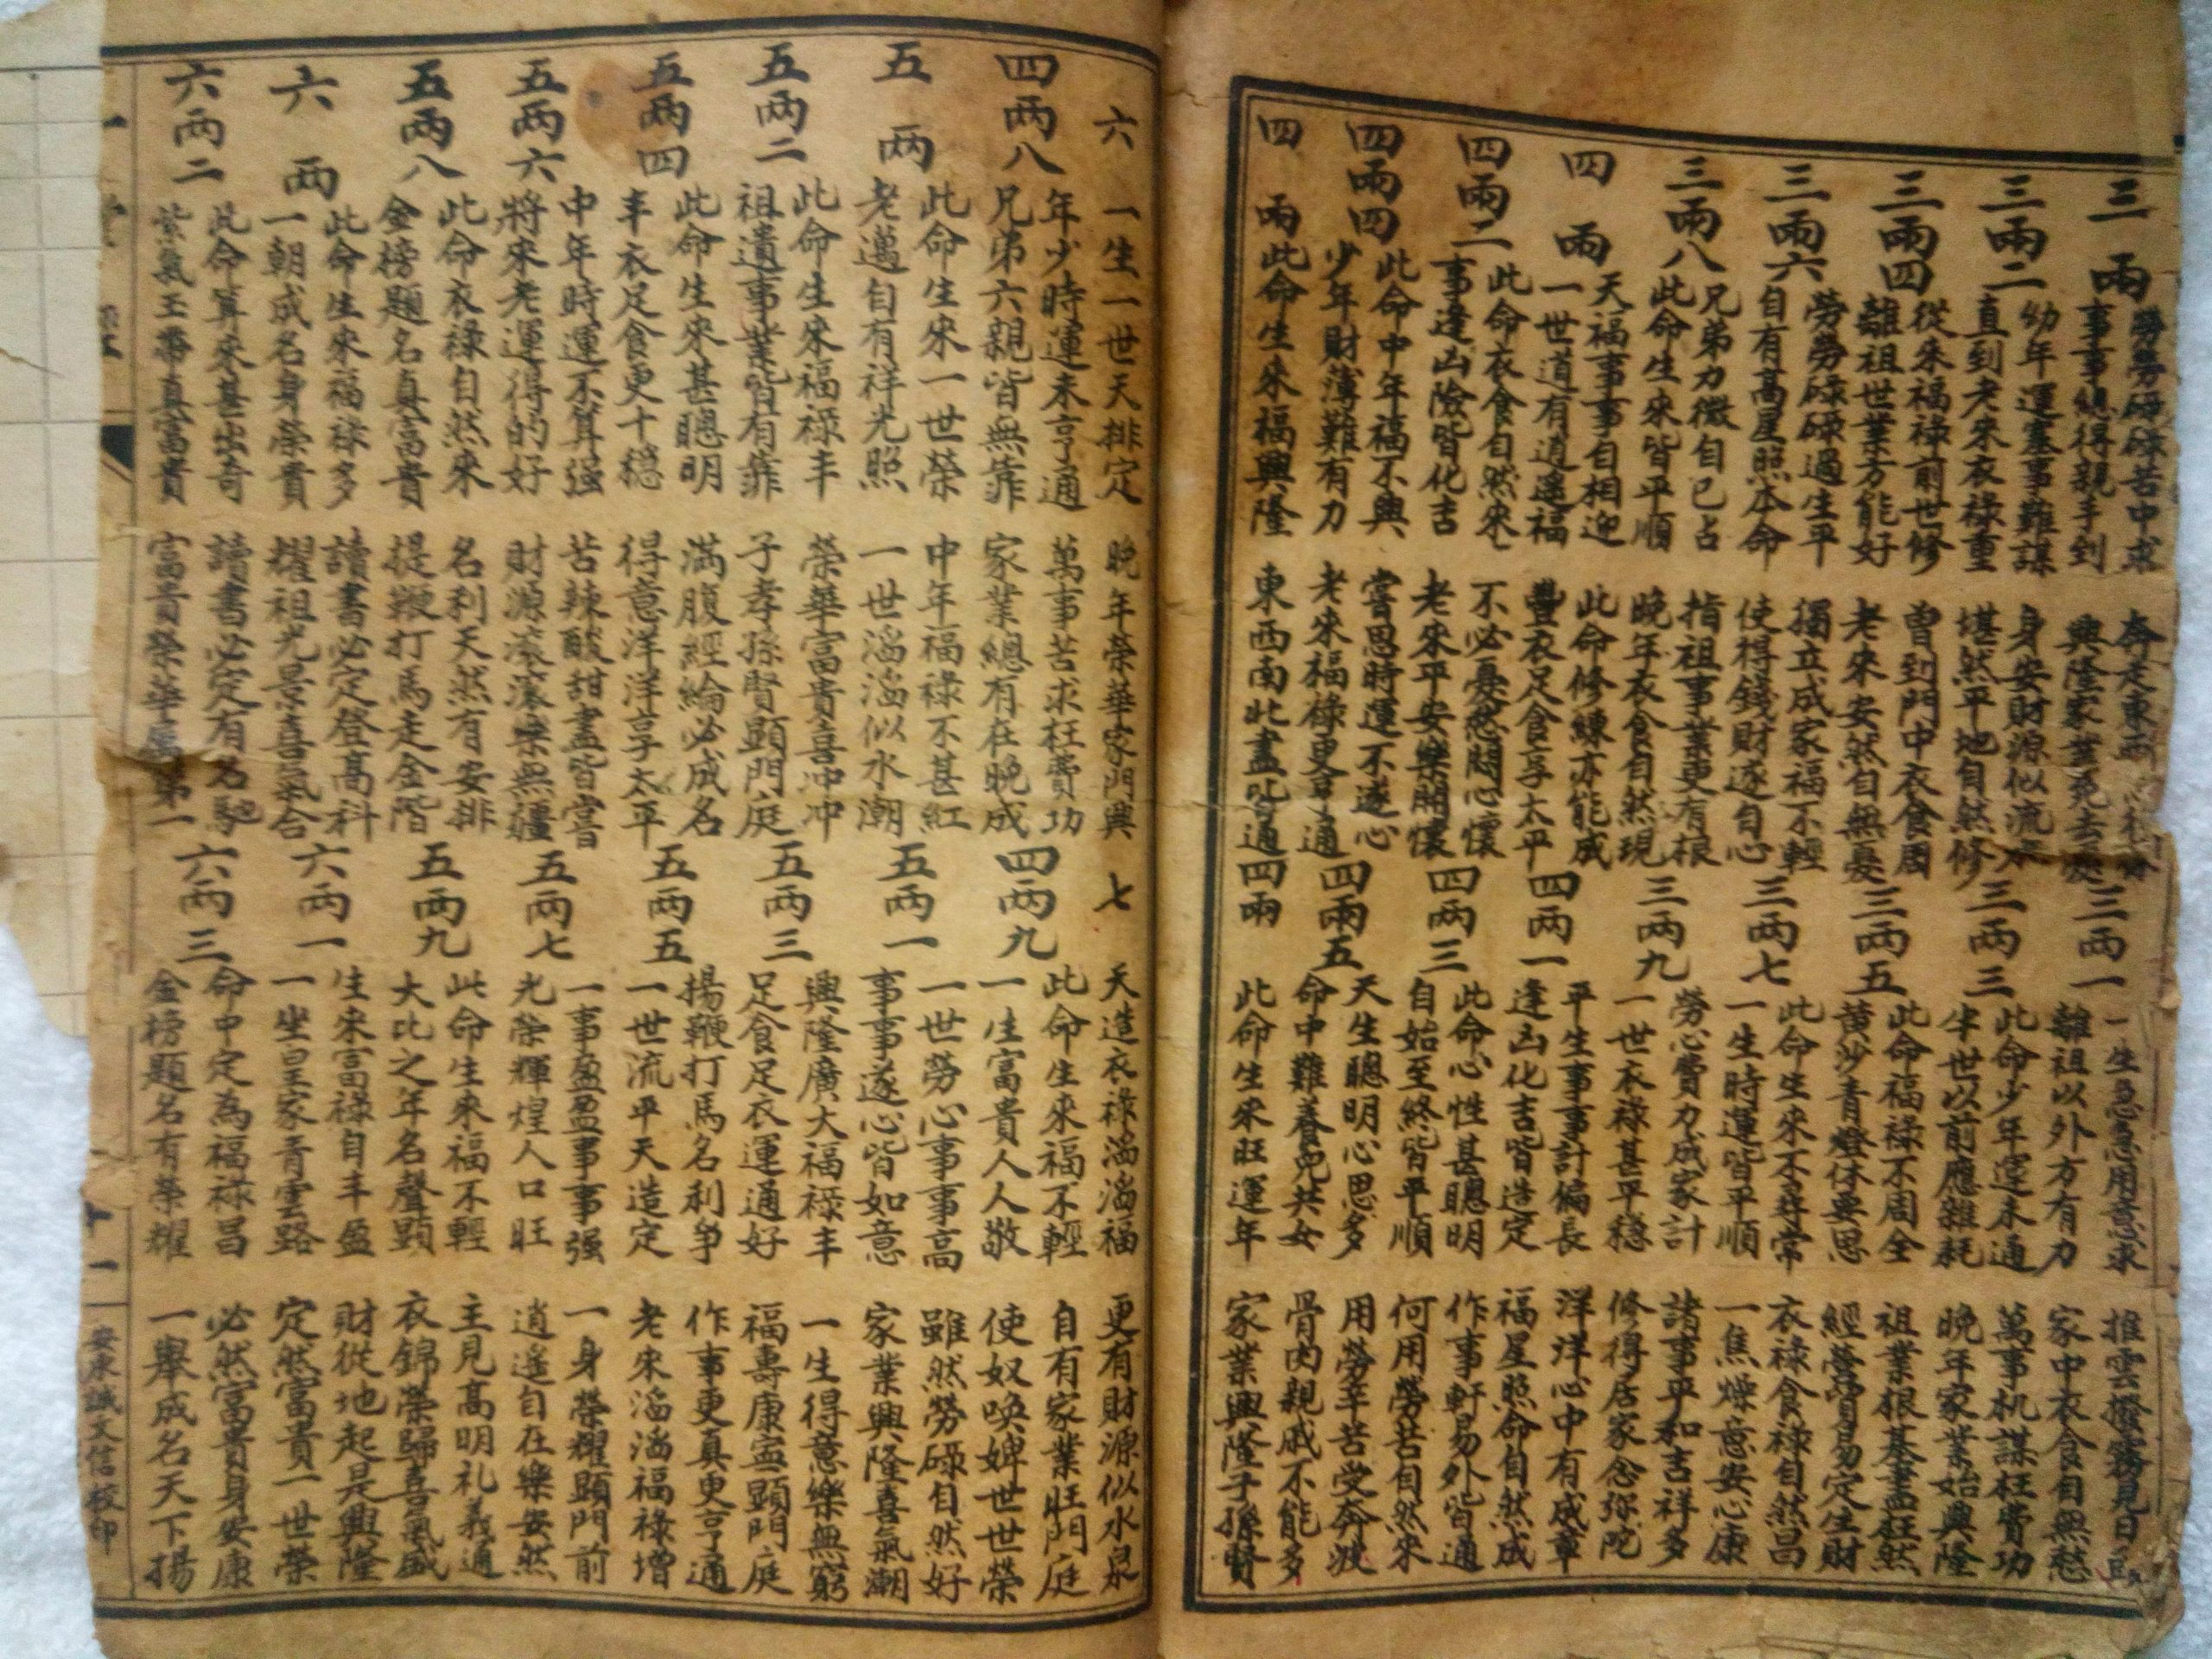 三兩
勞勞碌碌苦中求 奔走東西
事事總得親手到 興隆家業免去憂
三兩二
幼年運蹇事難謀 身安財源似流水
直到老來衣祿重 堪然平地自然修
三兩四
從來福祿前世修 曾到門中衣食周
離祖世業方能好 老來安然自無憂
三兩六
勞勞碌碌過生平 獨立成家福不輕
自有高星照本命 使得錢財遂自心
三兩八
兄弟力微自己占 指祖事業更有根
此命生來皆平順 晚年衣食自然現
四兩
天福事事自相迎 此命修練亦能成
一世道有逍遙福 豐衣足食享太平
四兩二
此命衣食自然來 不必憂愁悶心懷
事逢凶險皆化吉 老來平安樂開懷
四兩四
此命中年福不興 嘗思時運不遂心
少年財薄難有力 老來福祿更亨通
四兩
此命生來福興隆 東西南北盡皆通
三兩一
一生急急用意求 推雲撥霧見日
離祖以外方有力 家中衣食自無愁
三兩三
此命少年運未通 萬事机謀枉費功
半世以前應雜耗 晚年家業始興隆
三兩五
此命福祿不周全 祖業根基盡枉然
黃沙青燈休要思 經營貿易定生財
三兩七
此命生來不尋常 衣祿食祿自然昌
一生時運皆平順 一焦燥意安心康
三兩九
勞心費力成家計 諸事平和吉祥多
一世衣祿甚平穩 修得居家念弥陀
四兩一
平生事事計偏長 洋洋心中有成章
逢凶化吉皆造定 福星照命自然成
四兩三
此命心性甚聰明 作事軒易外皆通
自始至終皆平順 何用勞苦自然來
四兩五
天生聰明心思多 用勞辛苦受奔波
命中難養兒共女 骨肉親戚不能多
四兩
此命生來旺運年 家業興隆子孫賢
六
一生一世天排定 晚年榮華家門興
四兩八
年少時運未亨通 萬事苦求枉費功
兄弟六親皆無靠 家業總有在晚成
五兩
此命生來一世榮 中年福祿不甚紅
老邁自有祥光照 一世滔滔似水潮
五兩二
此命生來福祿丰 榮華富貴喜冲冲
祖遺事業皆有靠 子孝孫賢顯門庭
五兩四
此命生來甚聰明 滿腹經綸必成名
丰衣足食更十穩 得意洋洋享太平
五兩六
中年時運不算强 苦辣酸甜盡皆嘗
將來老運得的好 財源滾滾樂無疆
五兩八
此命衣祿自然來 名利天然有安排
金榜題名真富貴 提鞭打馬走金階
六兩
此命生來福祿多 讀書必定登高科
一朝成名身榮貴 耀祖光景喜氣合
六兩二
此命算來甚出奇 讀書必定有名馳
紫氣玉帶真富貴 富貴榮華第一
七
天造衣祿滔滔福 更有財源似水泉
四兩九
此命生來福不輕 自有家業旺門庭
一生富貴人人敬 使奴喚婢世世榮
五兩一
一世勞心事事高 雖然勞碌自然好
事事遂心皆如意 家業興隆喜氣潮
五兩三
興隆廣大福祿丰 一生得意樂無窮
足食足衣運通好 福壽康寧顯門庭
五兩五
揚鞭打馬名利爭 作事更真更亨通
一世流平天造定 老來滔滔福祿增
五兩七
一事盈盈事事强 一身榮耀顯門前
光榮輝煌人口旺 逍遙自在樂安然
五兩九
此命生來福不輕 主見高明礼義通
大比之年名聲顯 衣錦榮歸喜氣盛
六兩一
生來富祿自丰盈 財從地起是興隆
一坐皇家青雲路 定然富貴一世榮
六兩三
命中定為福祿昌 必然富貴身安康
金榜題名有榮耀 一舉成名天下揚
十一
安東誠文信校印